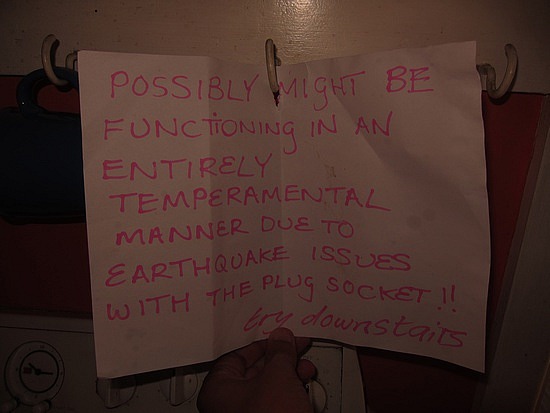 POSSIBLY MIGHT BE
FUNCTIONING IN AN
ENTIRELY
TEMPERAMENTAL
MANNER DUE TO
EARTHQUAKE ISSUES
WITH THE PLUG SOCKET!!
try downstairs